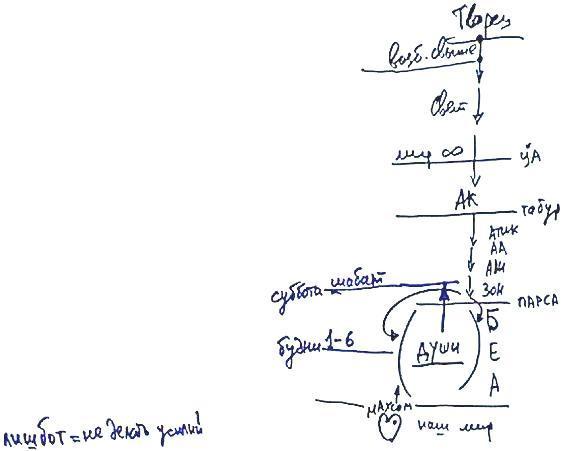 Творец
возб. свыше
Свет
мир ∞ ЦА
АК
табур
АТИК
АА
АИ
суббота шабат ЗОН
ПАРСА
Б
будни 1-6 ДУШИ Е
А
МАХСОМ
наш мир
лишбот = не делать усилий